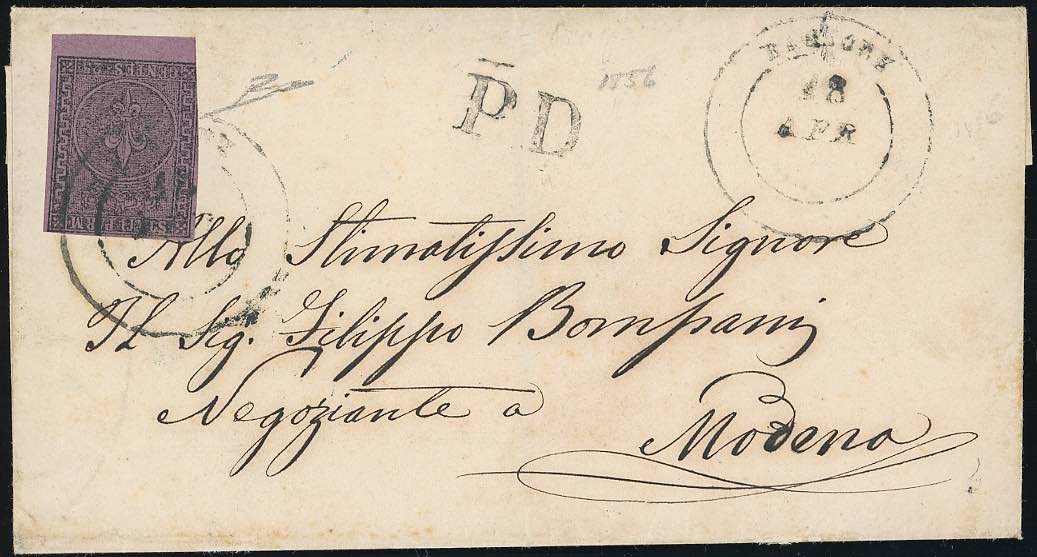 P.D
1856
BARDONE
18
APR
Allo Stimatissimo Signore
Il Sig. Filippo Bompani
Negoziante a
Modena